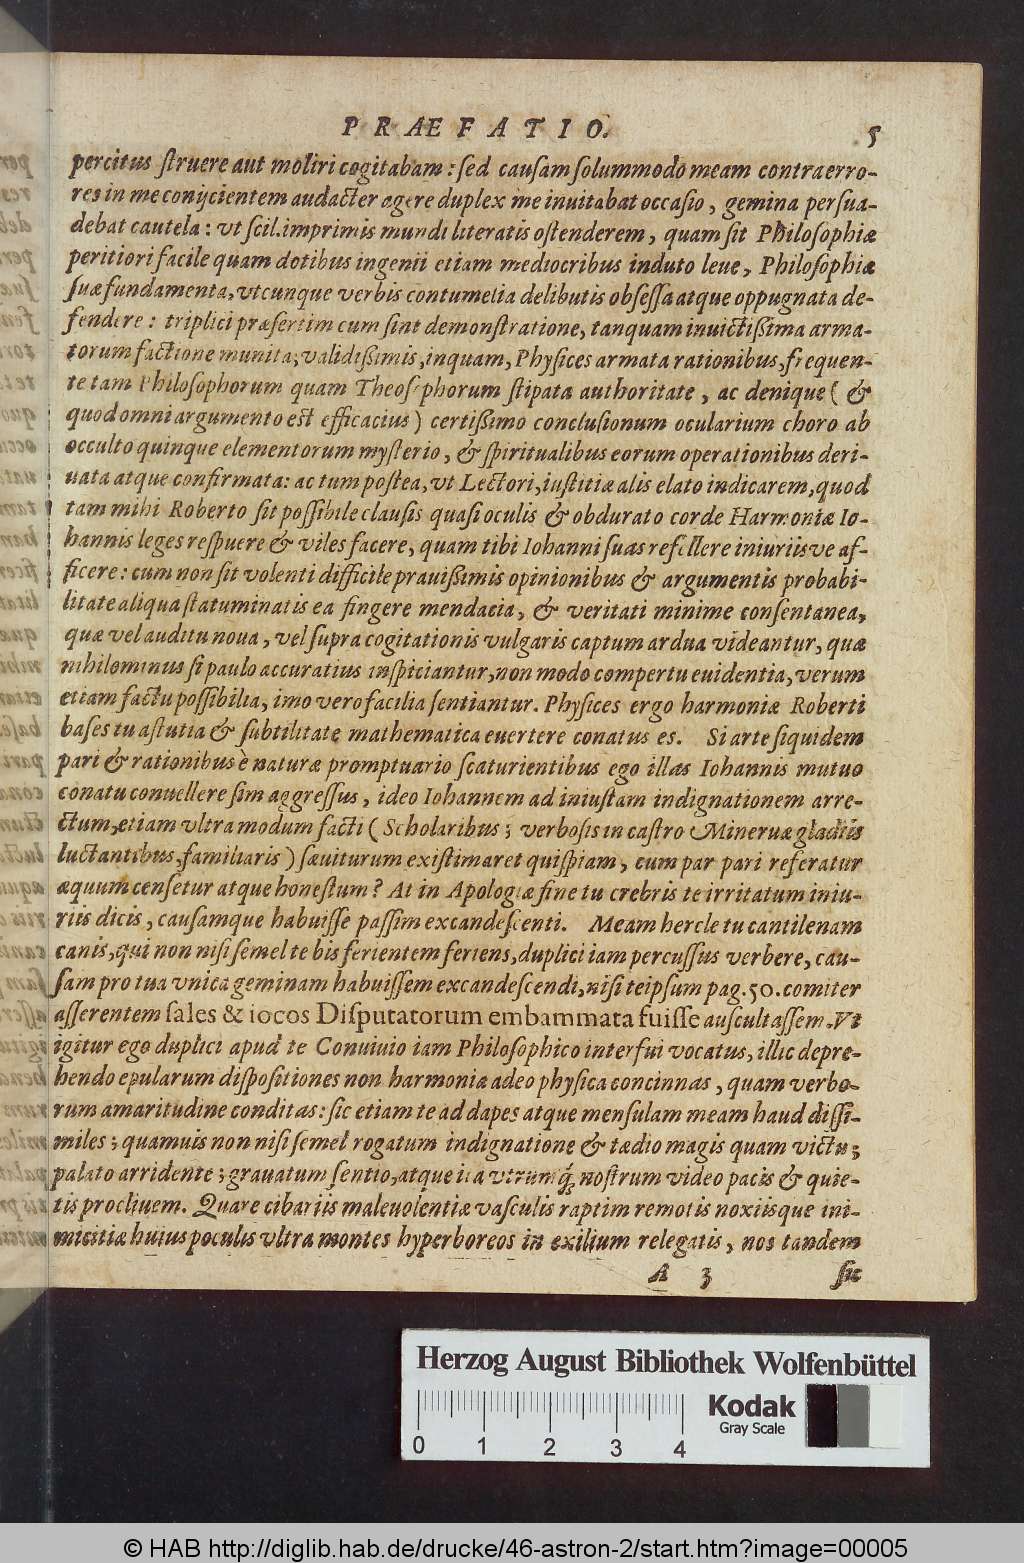 PRÆFATIO. 5
percitus struere aut moliri cogitabam: sed causam solummodò meam contra erro-
res in me conijcientem audacter agere duplex me inuitabat occasio, gemina persua-
debat cautela: vt scil. imprimis mundi literatis ostenderem, quam sit Philosophiæ
peritiori facile quam dotibus ingenii etiam mediocribus induto leue, Philosophiæ
suæ fundamenta, vtcunque verbis contumelia delibutis obsessa atque oppugnata de-
fendere: triplici præsertim cum sint demonstratione, tanquam inuictißima arma-
torum factione munita; validißimis, inquam, Physices armata rationibus, frequen-
te tam Philosophorum quam Theosophorum stipata authoritate, ac denique (&
quod omni argumento est efficacius) certißimo conclusionum ocularium choro ab
occulto quinque elementorum mysterio, & spiritualibus eorum operationibus deri-
uata atque confirmata: ac tum postea, vt Lectori, iustitiæ alis elato indicarem, quod
tam mihi Roberto sit possibile clausis quasi oculis & obdurato corde Harmoniæ Io-
hannis leges respuere & viles facere, quam tibi Iohanni suas refellere iniuriisve af-
ficere: cum non sit volenti difficile prauißimis opinionibus & argumentis probabi-
litate aliqua statuminatis ea fingere mendacia, & veritati minime consentanea,
quæ vel auditu noua, vel supra cogitationis vulgaris captum ardua videantur, quæ
nihilominus si paulo accuratius inspiciantur, non modo compertu euidentia, verum
etiam factu possibilia, imo vero facilia sentiantur. Physices ergo harmoniæ Roberti
bases tu astutia & subtilitate mathematica euertere conatus es. Si arte siquidem
pari & rationibus è naturæ promptuario scaturientibus ego illas Iohannis mutuo
conatu conuellere sim aggressus, ideo Iohannem ad iniustam indignationem arre-
ctum, etiam vltra modum facti (Scholaribus; verbosis in castro Mineruæ gladiis
luctantibus, familiaris) sæuiturum existimaret quispiam, cum par pari referatur
æquum censetur atque honestum? At in Apologiæ fine tu crebris te irritatum iniu-
riis dicis, causamque habuisse passim excandescenti. Meam hercle tu cantilenam
canis, qui non nisi semel te bis ferientem feriens, duplici iam percussus verbere, cau-
sam pro tua vnica geminam habuissem excandescendi, nisi teipsum pag. 50. comiter
asserentem sales & iocos Disputatorum embammata fuisse auscultassem. Vt
igitur ego duplici apud te Conuiuio iam Philosophico interfui vocatus, illic depre-
hendo epularum dispositiones non harmonia adeo physica concinnas, quam verbo-
rum amaritudine conditas: sic etiam te ad dapes atque mensulam meam haud dissi-
miles; quamuis non nisi semel rogatum indignatione & tædio magis quam victu;
palato arridente; grauatum sentio, atque ita vtrumq́; nostrum video pacis & quie-
tis procliuem. Quare cibariis maleuolentiæ vasculis raptim remotis noxiisque ini-
micitiæ huius poculis vltra montes hyperboreos in exilium relegatis, nos tandem
A 3 sic
Herzog August Bibliothek Wolfenbüttel
Kodak
Gray Scale
0 1 2 3 4
© HAB http://diglib.hab.de/drucke/46-astron-2/start.htm?image=00005